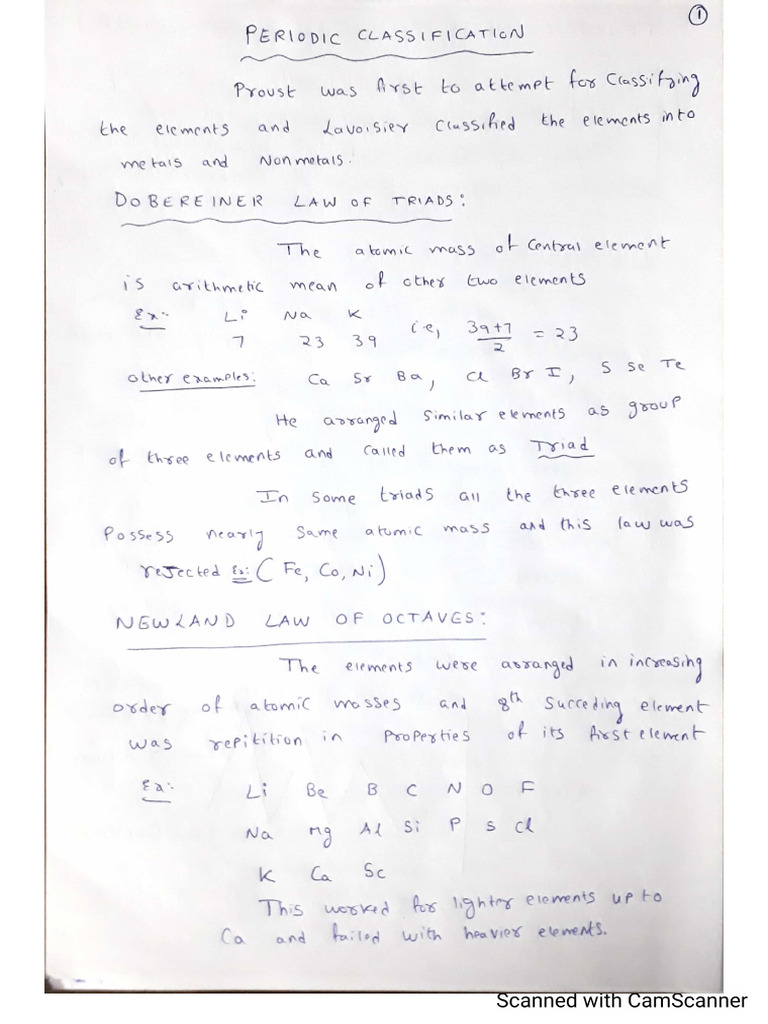 1
PERIODIC CLASSIFICATION
Proust was first to attempt for Classifying
the elements and Lavoisier Classified the elements into
metals and Nonmetals.
DOBEREINER LAW OF TRIADS:
The atomic mass of Central element
is arithmetic mean of other two elements
Ex:- Li Na K
7 23 39 i.e, 39+7/2 = 23
other examples: Ca Sr Ba, Cl Br I, S Se Te
He arranged Similar elements as group
of three elements and Called them as Triad
In Some triads all the three elements
Possess nearly Same atomic mass and this law was
rejected Ex: (Fe, Co, Ni)
NEWLAND LAW OF OCTAVES:
The elements were arranged in increasing
order of atomic masses and 8th Succeding element
was repitition in Properties of its first element
Ex:- Li Be B C N O F
Na Mg Al Si P S Cl
K Ca Sc
This worked for lighter elements up to
Ca and failed with heavier elements.
Scanned with CamScanner